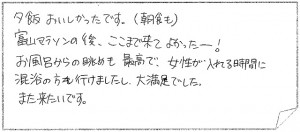 夕飯 おいしかったです。(朝食も)
富山マラソンの後、ここまで来てよかったー!
お風呂からの眺めも最高で、女性が入れる時間に
混浴の方も行けましたし、大満足でした。
また来たいです。